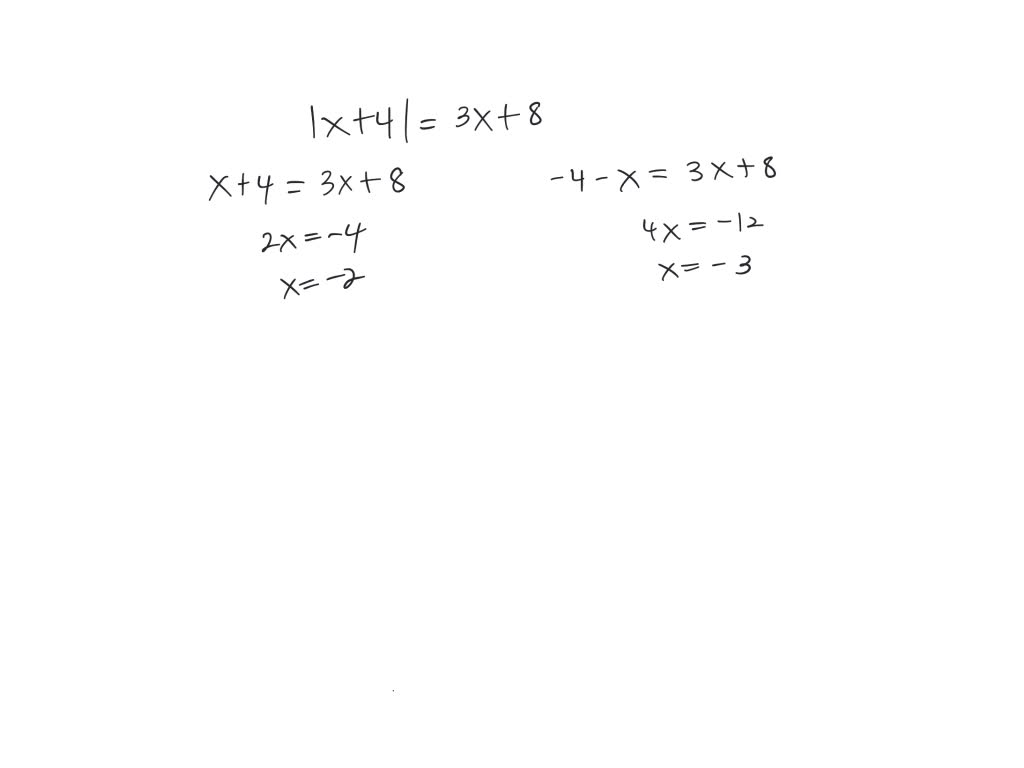 |x+4| = 3x+8
x+4 = 3x+8
2x = -4
x = -2
-4 - x = 3x+8
4x = -12
x = -3